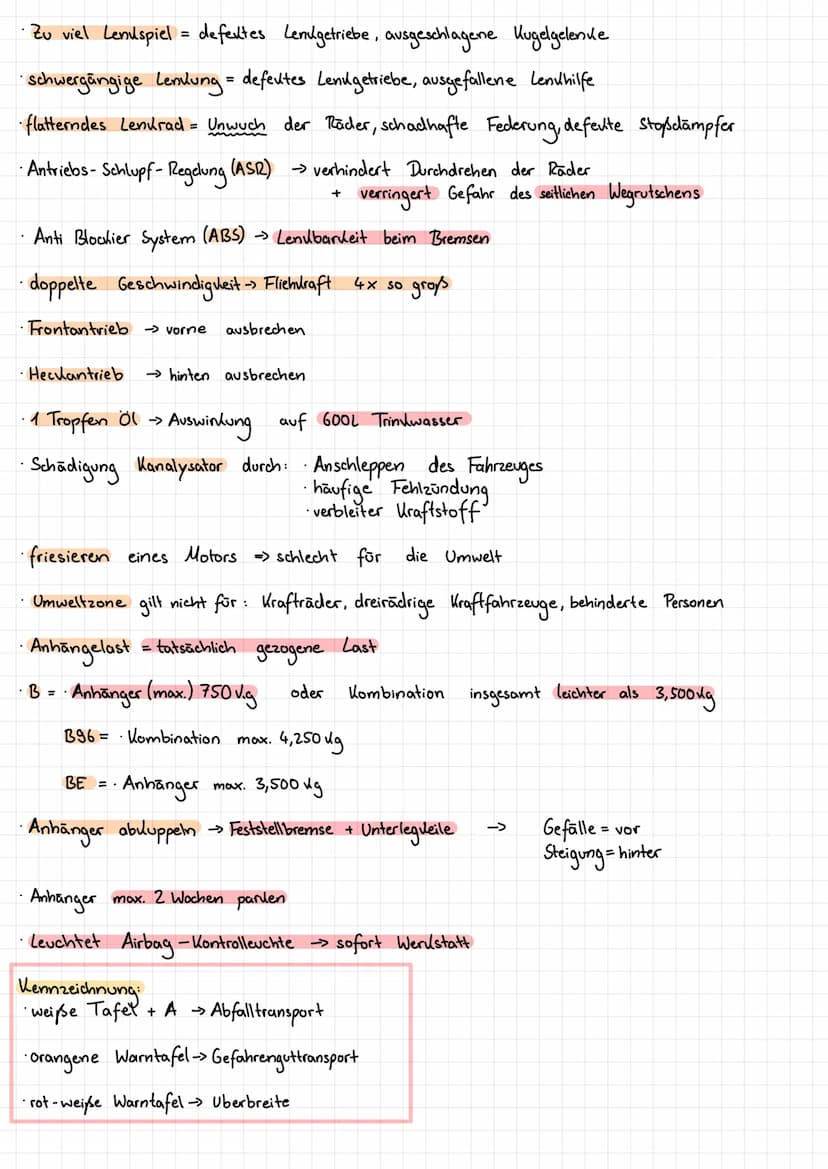 · Zu viel Lenkspiel = defektes Lenkgetriebe, ausgeschlagene Kugelgelenke
· schwergängige Lenkung = defektes Lenkgetriebe, ausgefallene Lenkhilfe
· flatterndes Lenkrad = Unwuch der Räder, schadhafte Federung, defekte Stoßdämpfer
· Antriebs-Schlupf-Regelung (ASR) → verhindert Durchdrehen der Räder
+ verringert Gefahr des seitlichen Wegrutschens
· Anti Blockier System (ABS) → Lenkbarkeit beim Bremsen
· doppelte Geschwindigkeit → Fliehkraft 4x so groß
· Frontantrieb → vorne ausbrechen
· Heckantrieb → hinten ausbrechen
· 1 Tropfen Öl → Auswirkung auf 600L Trinkwasser
· Schädigung Kanalysator durch: · Anschleppen des Fahrzeuges
· häufige Fehlzündung
· verbleiter Kraftstoff
· friesieren eines Motors => schlecht für die Umwelt
· Umweltzone gilt nicht für: Krafträder, dreirädrige Kraftfahrzeuge, behinderte Personen
· Anhängelast = tatsächlich gezogene Last
· B = · Anhänger (max.) 750 kg oder Kombination insgesamt leichter als 3,500kg
B96 = · Kombination max. 4,250 kg
BE = · Anhänger max. 3,500 kg
· Anhänger abkuppeln → Feststellbremse + Unterlegkeile → Gefälle = vor
Steigung = hinter
· Anhänger max. 2 Wochen parken
· Leuchtet Airbag-Kontrolleuchte → sofort Werkstatt
Kennzeichnung:
· weiße Tafel + A → Abfalltransport
· orangene Warntafel → Gefahrenguttransport
· rot-weiße Warntafel → Uberbreite